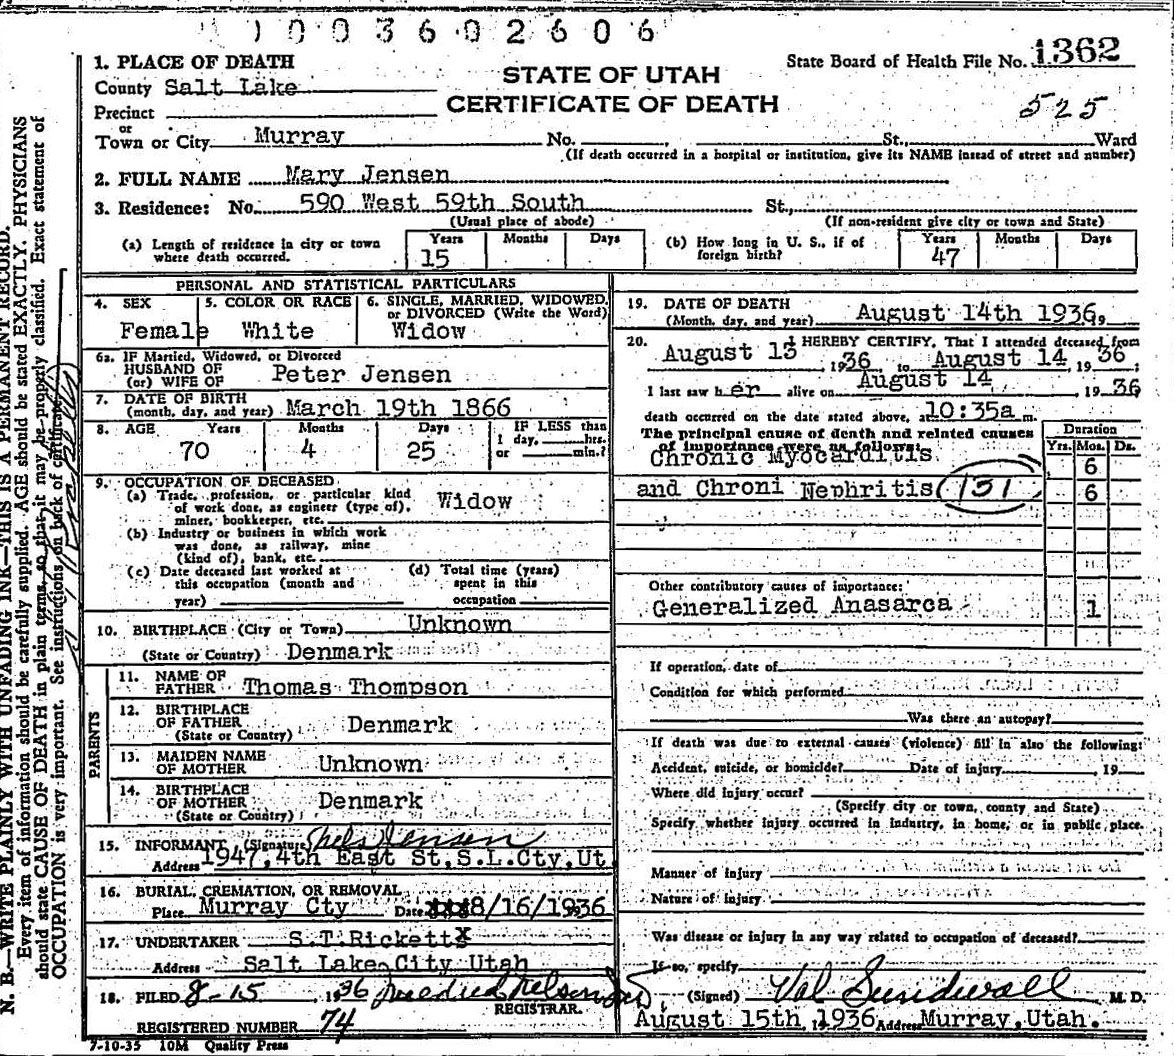 1003602606
1. PLACE OF DEATH
County Salt Lake
Precinct
or
Town or City Murray No. St., Ward
STATE OF UTAH
CERTIFICATE OF DEATH
State Board of Health File No. 1362
525
(If death occurred in a hospital or institution, give its NAME instead of street and number)
2. FULL NAME Mary Jensen
3. Residence: No. 590 West 59th South St.,
(Usual place of abode) (If non-resident give city or town and State)
(a) Length of residence in city or town where death occurred. Years 15 Months Days
(b) How long in U. S., if of foreign birth? Years 47 Months Days
PERSONAL AND STATISTICAL PARTICULARS
4. SEX Female
5. COLOR OR RACE White
6. SINGLE, MARRIED, WIDOWED, or DIVORCED (Write the Word) Widow
6a. IF Married, Widowed, or Divorced
HUSBAND OF
(or) WIFE OF Peter Jensen
7. DATE OF BIRTH
(month, day, and year) March 19th 1866
8. AGE Years 70 Months 4 Days 25 IF LESS than 1 day, hrs. or min.?
9. OCCUPATION OF DECEASED
(a) Trade, profession, or particular kind of work done, as engineer (type of), miner, bookkeeper, etc. Widow
(b) Industry or business in which work was done, as railway, mine (kind of), bank, etc.
(c) Date deceased last worked at this occupation (month and year)
(d) Total time (years) spent in this occupation
10. BIRTHPLACE (City or Town) Unknown
(State or Country) Denmark
PARENTS
11. NAME OF FATHER Thomas Thompson
12. BIRTHPLACE OF FATHER (State or Country) Denmark
13. MAIDEN NAME OF MOTHER Unknown
14. BIRTHPLACE OF MOTHER (State or Country) Denmark
15. INFORMANT (Signature) Nels Jensen
Address 1947, 4th East St, S.L.Cty, Ut
16. BURIAL, CREMATION, OR REMOVAL
Place Murray Cty Date 8/16/1936
17. UNDERTAKER S.T.Ricketts
Address Salt Lake City Utah
18. FILED 8-15 1936
REGISTRAR.
REGISTERED NUMBER 74
7-10-35 10M Quality Press
19. DATE OF DEATH
(Month, day, and year) August 14th 1936,
20. I HEREBY CERTIFY, That I attended deceased from
August 13, 1936, to August 14, 1936
I last saw her alive on August 14, 1936
death occurred on the date stated above, at 10:35a m.
The principal cause of death and related causes of importance were as follows:
Duration
Yrs. Mos. Ds.
Chronic Myocarditis 6
and Chroni Nephritis 131 6
Other contributory causes of importance:
Generalized Anasarca 1
If operation, date of
Condition for which performed
Was there an autopsy?
If death was due to external causes (violence) fill in also the following:
Accident, suicide, or homicide? Date of injury , 19
Where did injury occur?
(Specify city or town, county and State)
Specify whether injury occurred in industry, in home, or in public place.
Manner of injury
Nature of injury
Was disease or injury in any way related to occupation of deceased?
If so, specify
(Signed) Val Sundwall M. D.
August 15th, 1936 Address Murray, Utah.
N. B.—WRITE PLAINLY WITH UNFADING INK—THIS IS A PERMANENT RECORD.
Every item of information should be carefully supplied. AGE should be stated EXACTLY. PHYSICIANS
should state CAUSE OF DEATH in plain terms, so that it may be properly classified. Exact statement of
OCCUPATION is very important. See instructions on back of certificate.